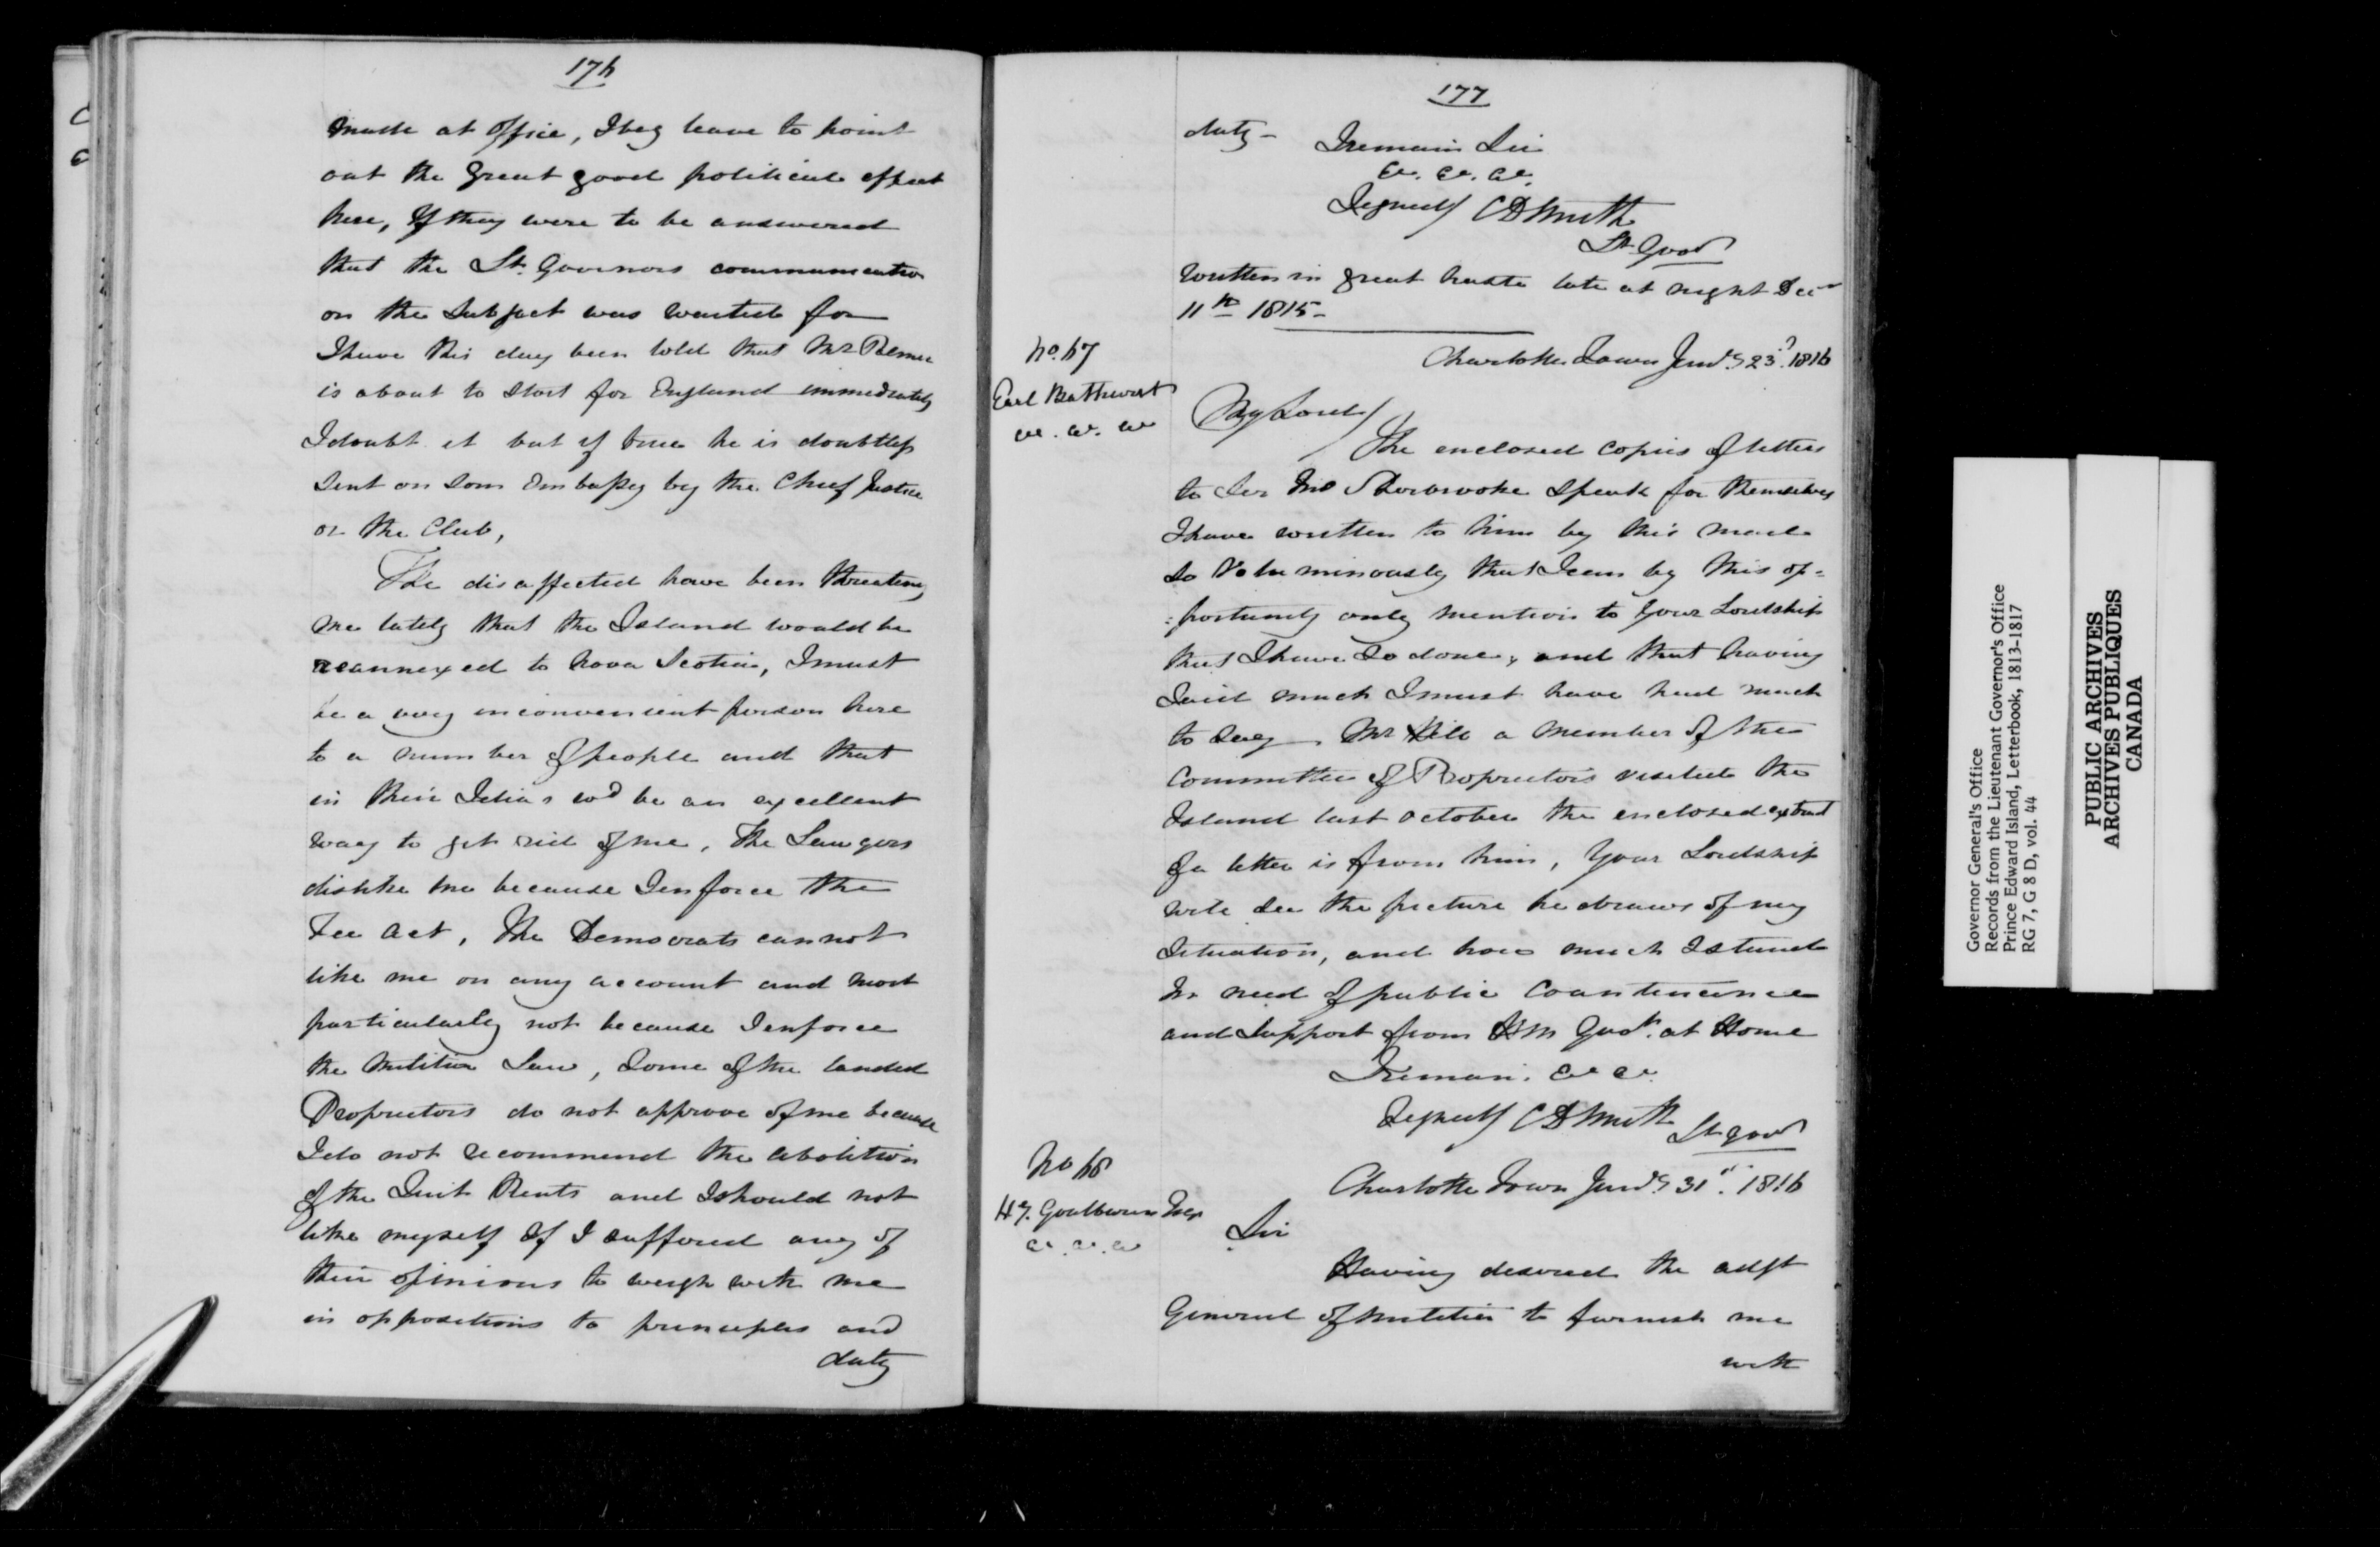 176
made at office, I beg leave to point
out the great good political effect
here, If they were to be answered
that the Lt. Governors communication
on the Subject was waited for
I have this day been told that Mr Palmer
is about to start for England immediately
I doubt it but if true he is doubtless
sent on som Embassy by the Chief Justice
or the Club,
The disaffected have been threatening
me lately that the Island would be
reannexed to Nova Scotia, I must
be a very inconvenient person here
to a number of people and that
in their Ideas wd be an excellent
way to get rid of me, The Lawyers
dislike me because I enforce the
Fee Act, The Democrats cannot
like me on any account and most
particularly not because I enforce
the Militia Law, Some of the landed
Proprietors do not approve of me because
I do not recommend the abolition
of the Quit Rents and I should not
like myself If I suffered any of
their opinions to weigh with me
in oppositions to principles and
duty
177
duty - I remain Sir
&c. &c. &c.
Signed/ CD Smith
Lt. Govr
Written in great haste late at night Decr
11th 1815-
No. 67
Earl Bathurst
&c. &c. &c
Charlotte Town Jany 23d. 1816
My Lord/
The enclosed copies of letters
to Sir Jno Sherbrooke speak for themselves
I have written to him by this mail
so voluminously that I can by this op=
=portunity only mention to your Lordship
that I have so done, and that having
said much I must have had much
to say. Mr Hill a member of the
Committee of Proprietors visited the
Island last October the enclosed extract
of a letter is from him, Your Lordship
will see the picture he draws of my
Situation, and how much I stand
In need of public Countenance
and Support from HM Govt. at Home
I remain. &c &c.
Signed/ CD Smith
Lt. Govr
No 68
Hy. Goulburn Esqr
&c. &c. &c
Charlotte Town Jany 31st. 1816
Sir
Having desired the adjt
General of Militia to furnish me
with
Governor General's Office
Records from the Lieutenant Governor's Office
Prince Edward Island, Letterbook, 1813-1817
RG 7, G 8 D, vol. 44
PUBLIC ARCHIVES
ARCHIVES PUBLIQUES
CANADA